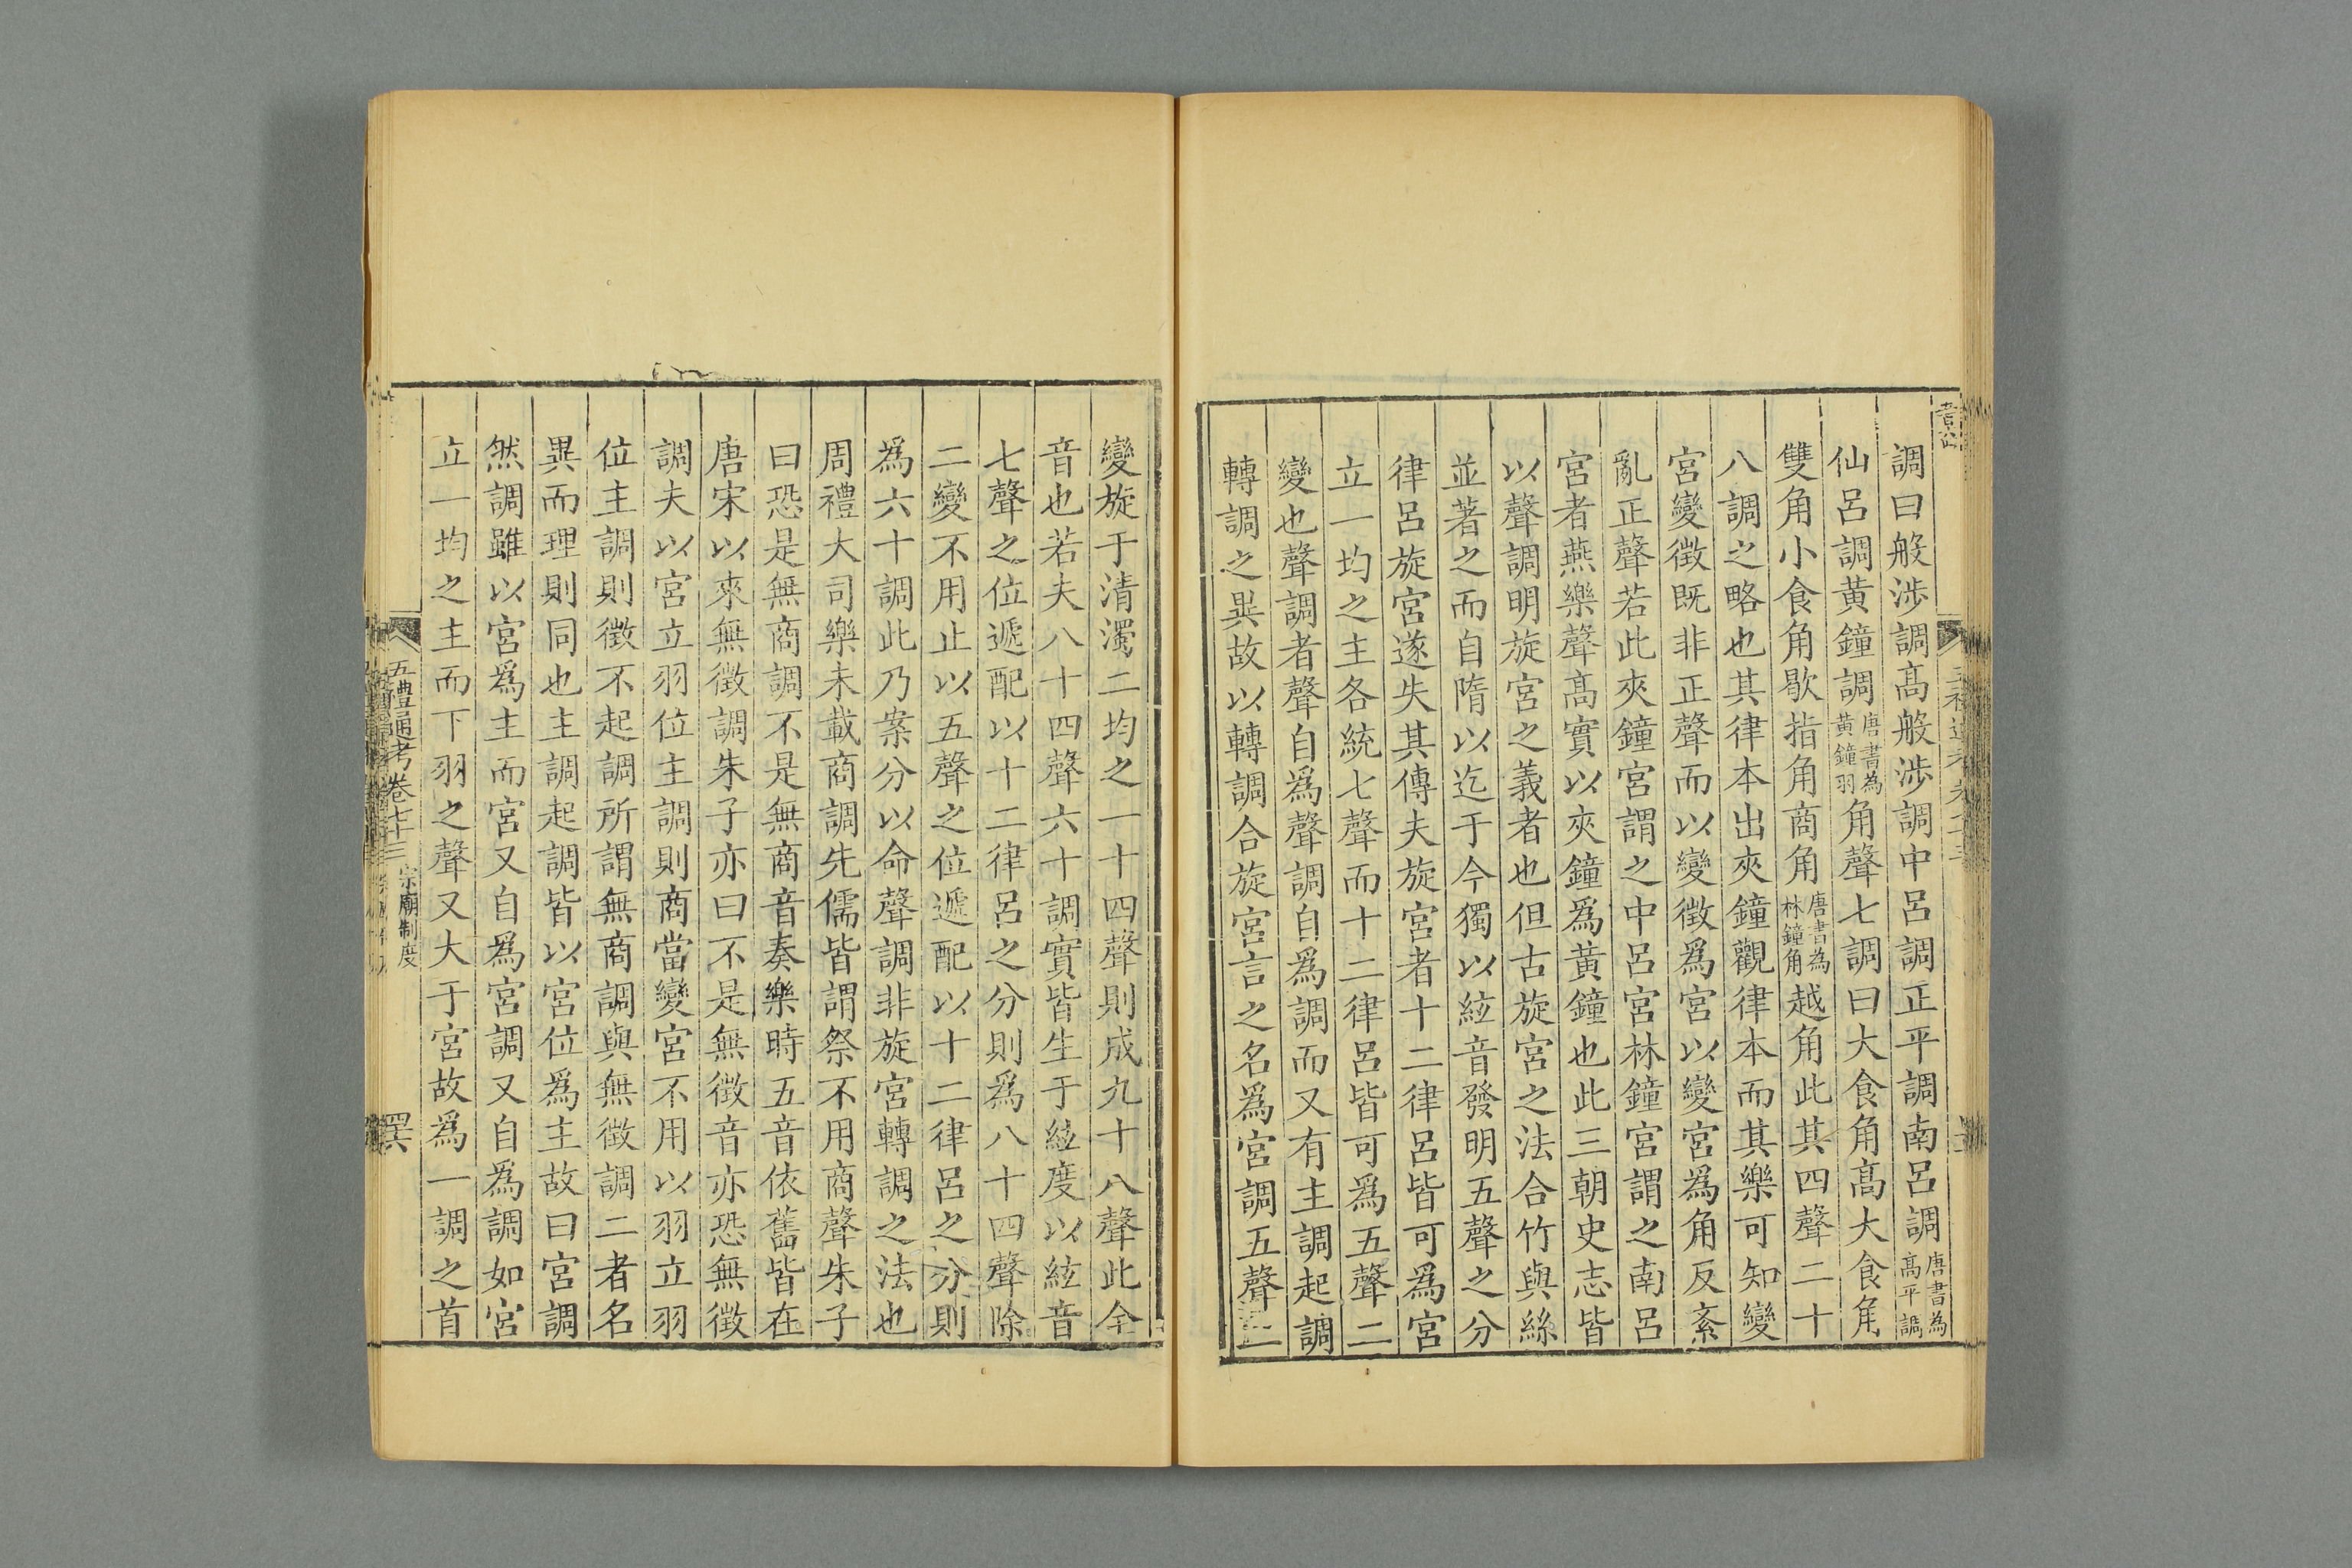 調曰般涉調高般涉調中呂調正平調南呂調唐書為高平調
仙呂調黃鐘調唐書為黃鐘羽角聲七調曰大食角高大食角
雙角小食角歇指角商角唐書為林鐘角越角此其四聲二十
八調之略也其律本出夾鐘觀律本而其樂可知變
宮變徵既非正聲而以變徵爲宮以變宮爲角反紊
亂正聲若此夾鐘宮謂之中呂宮林鐘宮謂之南呂
宮者燕樂聲高實以夾鐘爲黃鐘也此三朝史志皆
以聲調明旋宮之義者也但古旋宮之法合竹與絲
並著之而自隋以迄于今獨以絃音發明五聲之分
律呂旋宮遂失其傳夫旋宮者十二律呂皆可爲宮
立一均之主各統七聲而十二律呂皆可爲五聲二
變也聲調者聲自爲聲調自爲調而又有主調起調
轉調之異故以轉調合旋宮言之名爲宮調五聲二
變旋于清濁二均之一十四聲則成九十八聲此全
音也若夫八十四聲六十調實皆生于絃度以絃音
七聲之位遞配以十二律呂之分則爲八十四聲除
二變不用止以五聲之位遞配以十二律呂之分則
爲六十調此乃案分以命聲調非旋宮轉調之法也
周禮大司樂未載商調先儒皆謂祭不用商聲朱子
曰恐是無商調不是無商音奏樂時五音依舊皆在
唐宋以來無徵調朱子亦曰不是無徵音亦恐無徵
調夫以宮立羽位主調則商當變宮不用以羽立羽
位主調則徵不起調所謂無商調與無徵調二者名
異而理則同也主調起調皆以宮位爲主故曰宮調
然調雖以宮爲主而宮又自爲宮調又自爲調如宮
立一均之主而下羽之聲又大于宮故爲一調之首
五禮通考卷七十三 宗廟制度